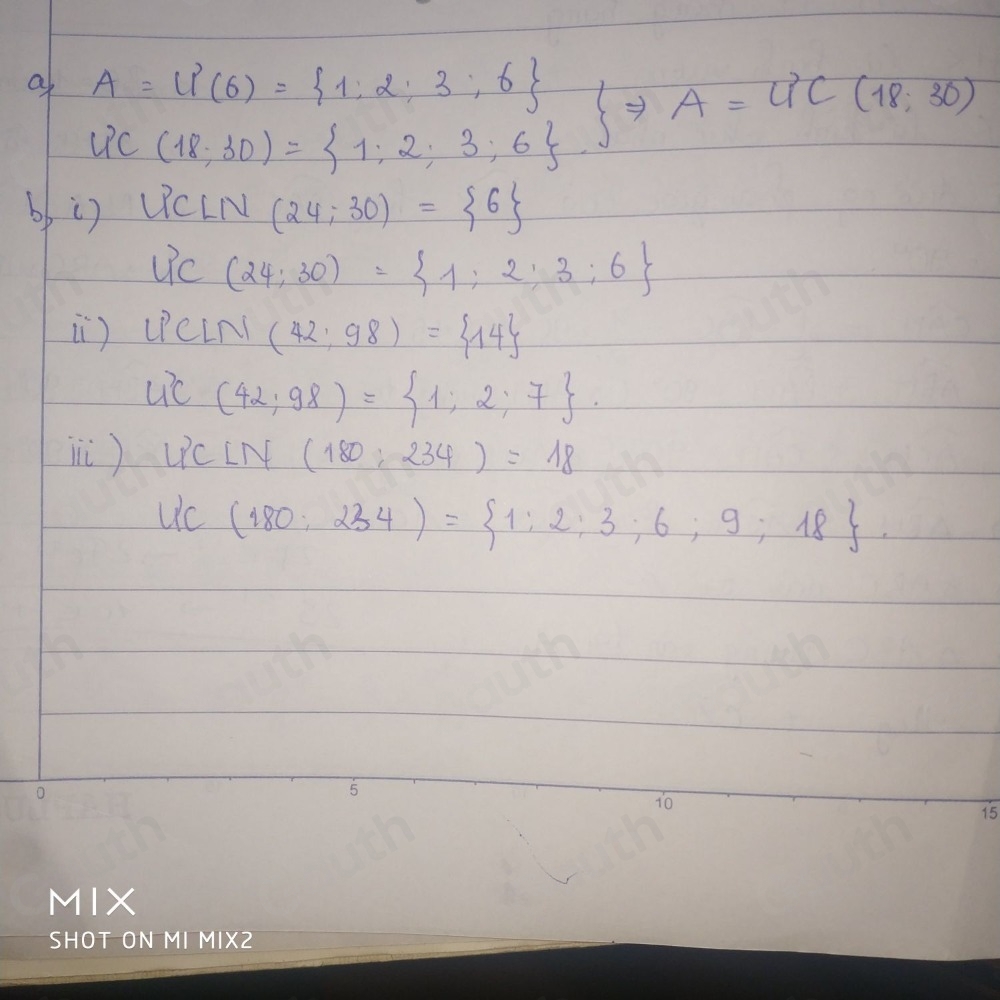 a, A = Ư(6) = {1; 2; 3; 6} } ⇒ A = ƯC (18; 30)
ƯC (18; 30) = {1; 2; 3; 6}.
b, i) ƯCLN (24; 30) = {6}
ƯC (24; 30) = {1; 2; 3; 6}
ii) ƯCLN (42; 98) = {14}
ƯC (42; 98) = {1; 2; 7}.
iii) ƯCLN (180; 234) = 18
ƯC (180; 234) = {1; 2; 3; 6; 9; 18}.
0 5 10 15
MIX
SHOT ON MI MIX2